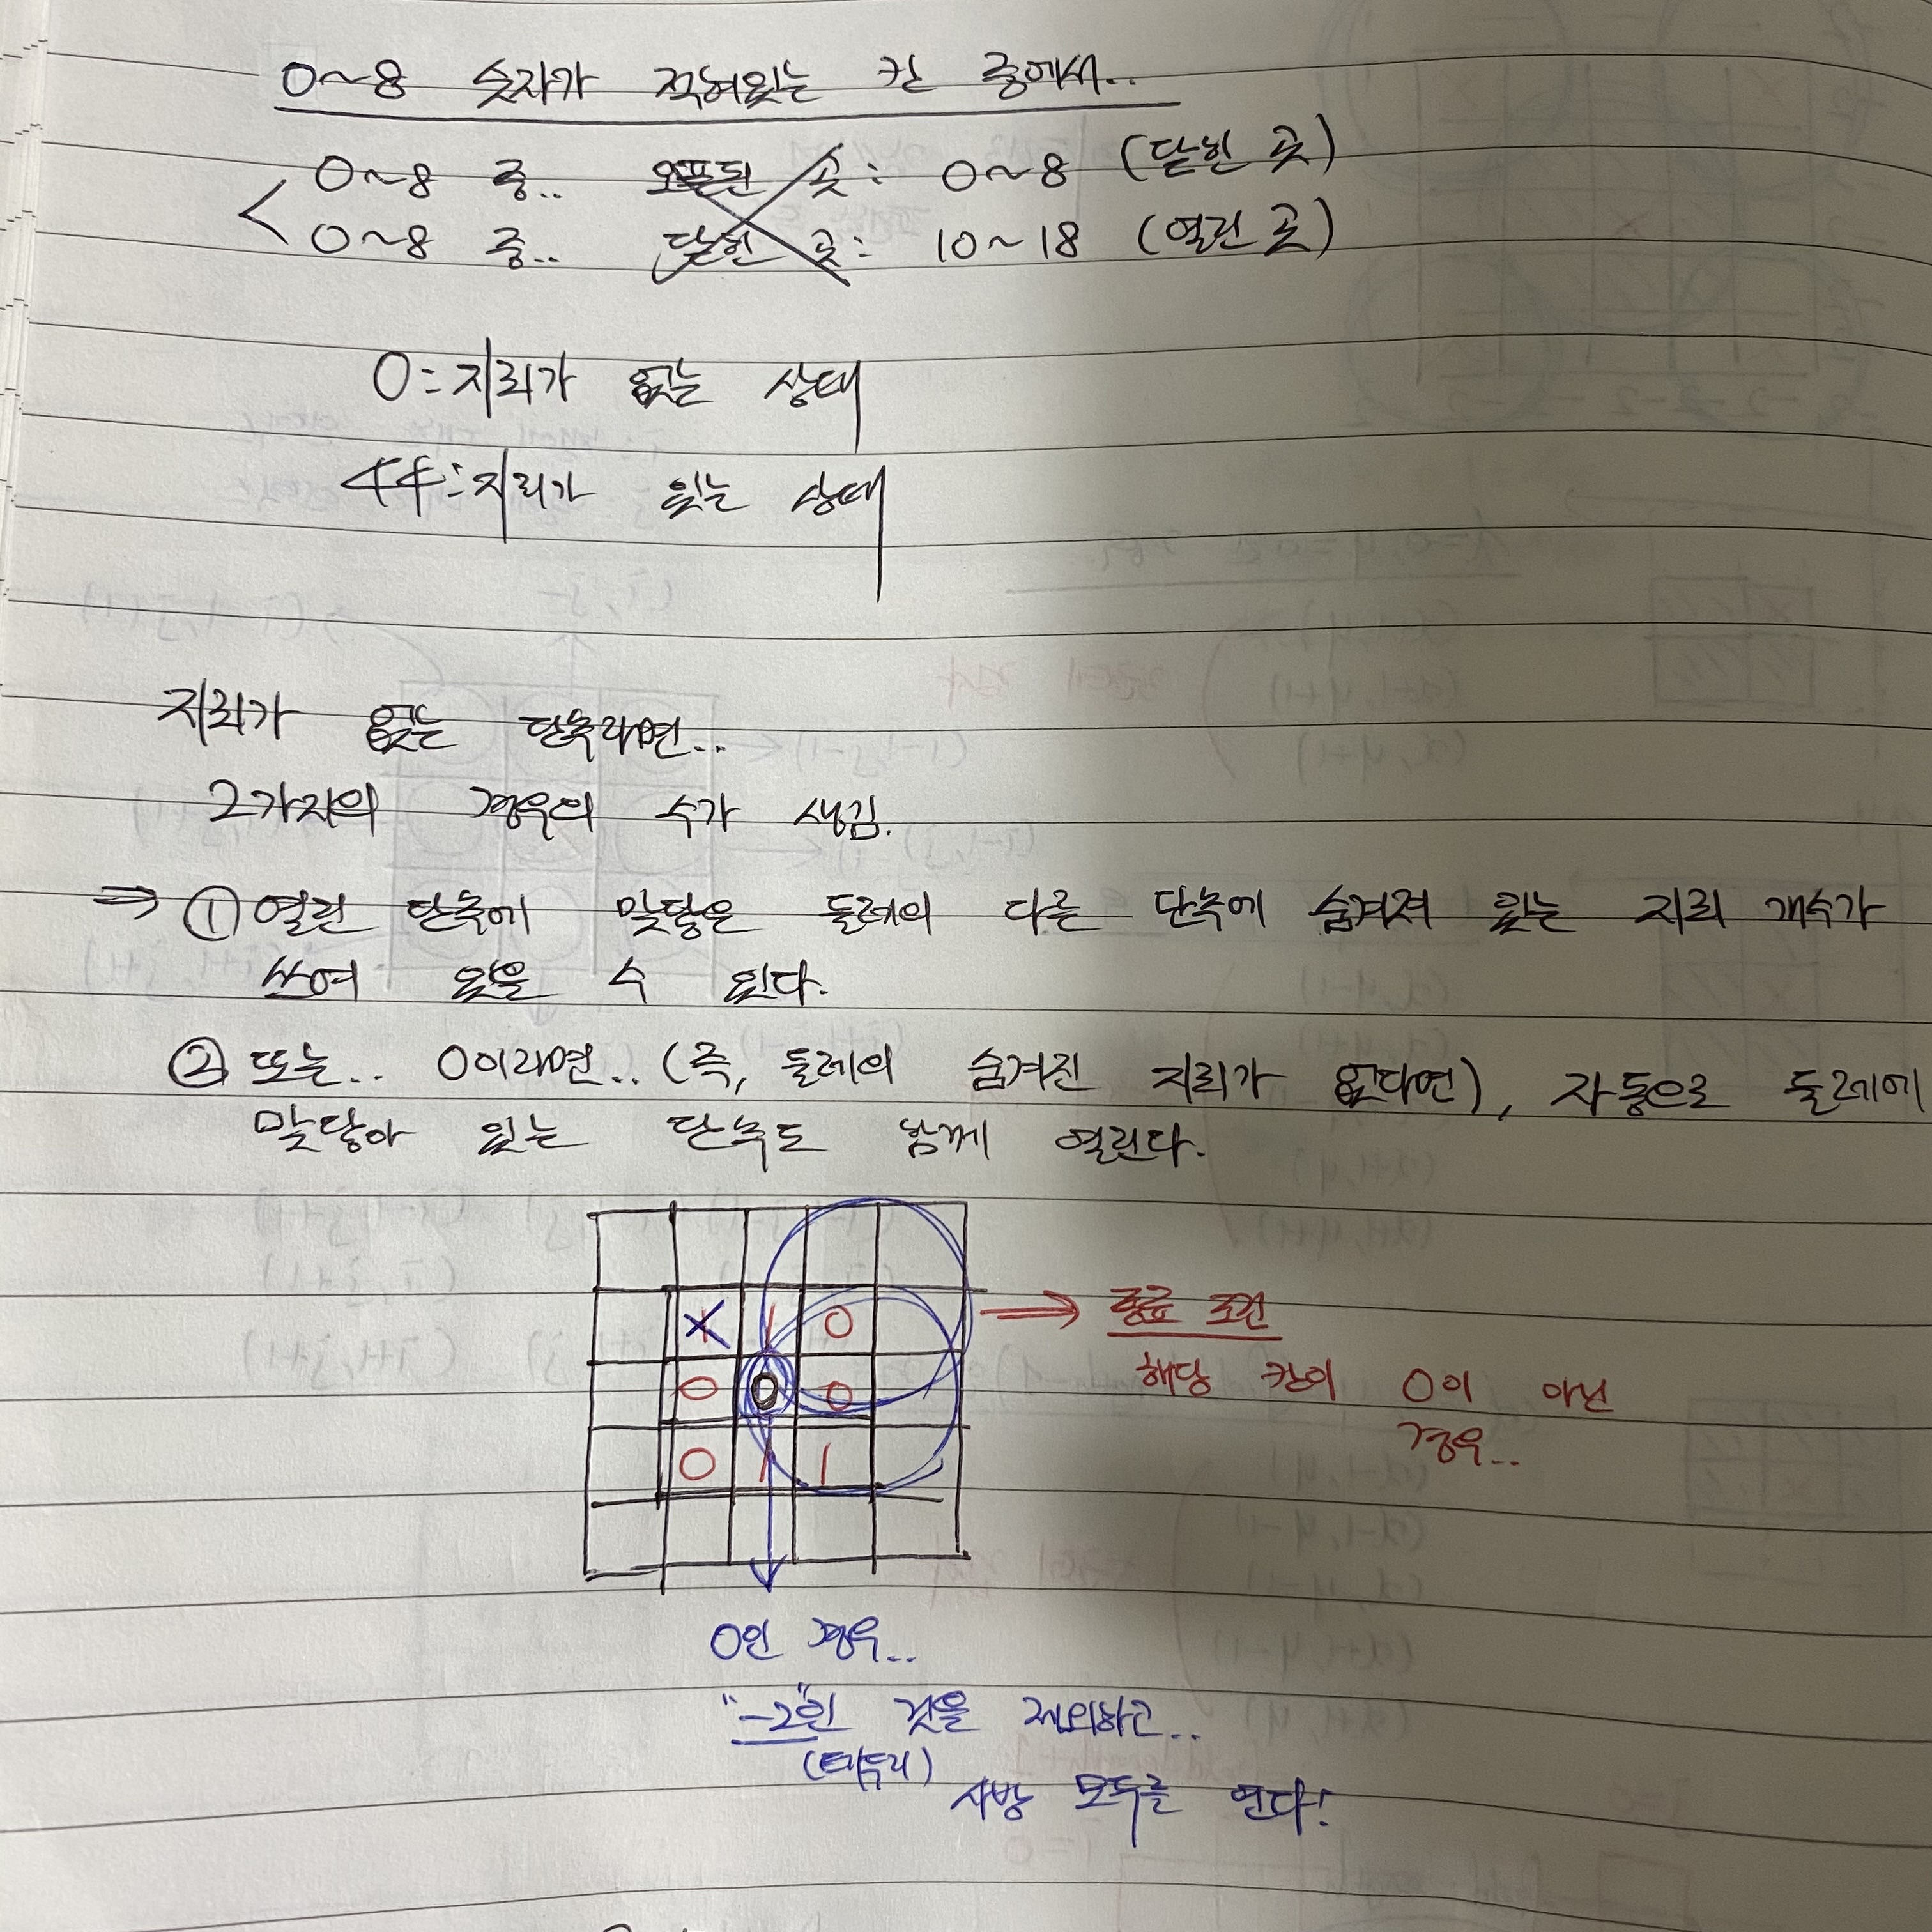 0~8 숫자가 적혀있는 칸 중에서..
0~8 중.. 오픈된 곳: 0~8 (닫힌 곳)
0~8 중.. 닫힌 곳: 10~18 (열린 곳)
0: 지뢰가 없는 상태
44: 지뢰가 있는 상태
지뢰가 없는 단추라면..
2가지의 경우의 수가 생김.
⇒ ① 열린 단추에 맞닿은 둘레의 다른 단추에 숨겨져 있는 지뢰 개수가
쓰여 있을 수 있다.
② 또는.. 0이라면.. (즉, 둘레의 숨겨진 지뢰가 없다면), 자동으로 둘레에
맞닿아 있는 단추도 함께 열린다.
X 1 0
0 0 0
0 1 1
→ 종료 조건
해당 칸이 0이 아닌
경우..
0인 경우..
"-2"인 것을 제외하고..
(테두리)
사방 모두를 연다!